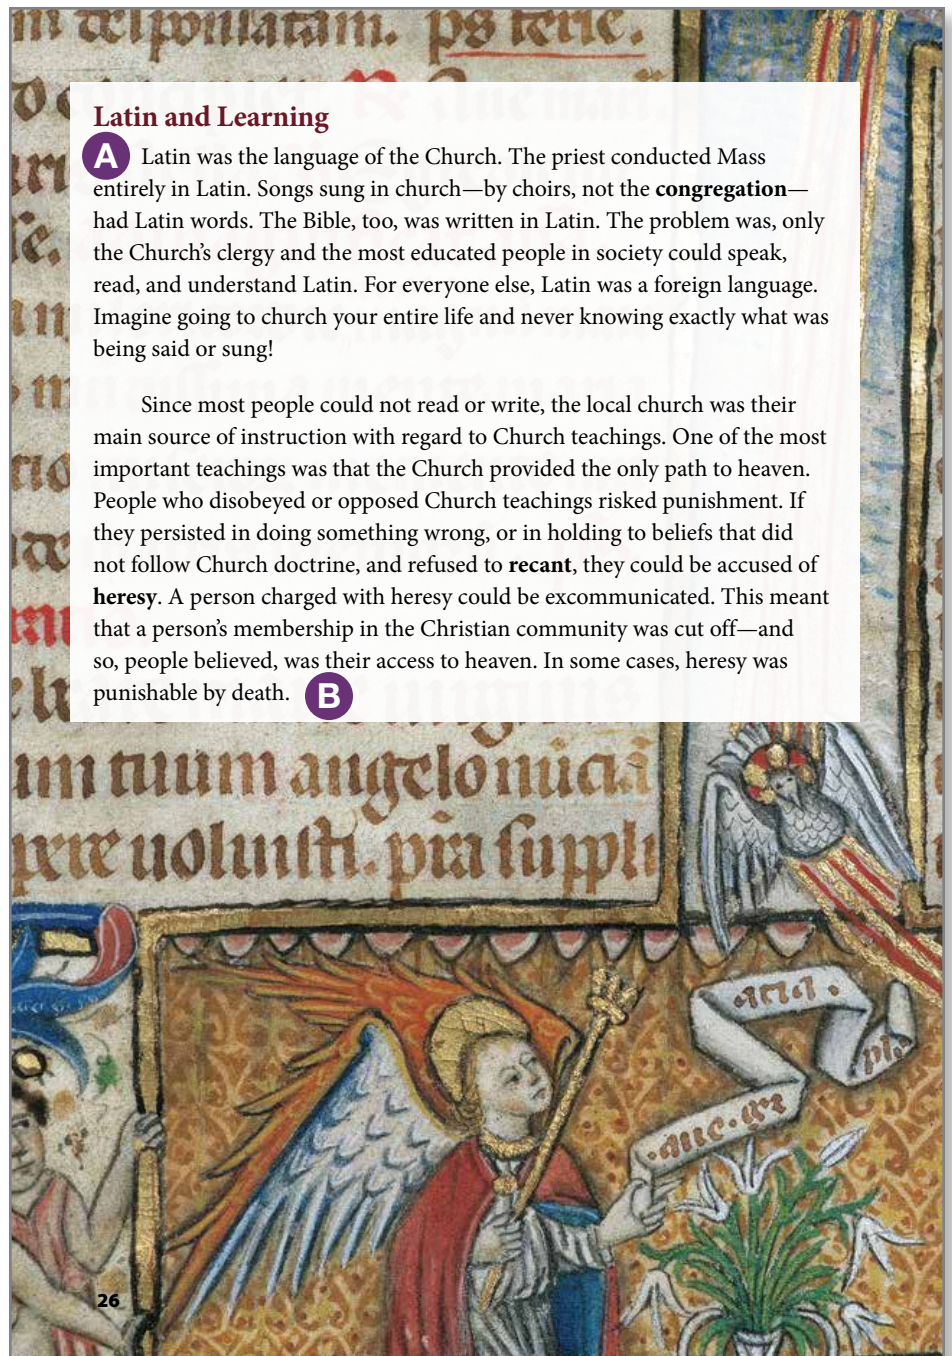 Latin and Learning
A Latin was the language of the Church. The priest conducted Mass
entirely in Latin. Songs sung in church—by choirs, not the congregation—
had Latin words. The Bible, too, was written in Latin. The problem was, only
the Church’s clergy and the most educated people in society could speak,
read, and understand Latin. For everyone else, Latin was a foreign language.
Imagine going to church your entire life and never knowing exactly what was
being said or sung!
Since most people could not read or write, the local church was their
main source of instruction with regard to Church teachings. One of the most
important teachings was that the Church provided the only path to heaven.
People who disobeyed or opposed Church teachings risked punishment. If
they persisted in doing something wrong, or in holding to beliefs that did
not follow Church doctrine, and refused to recant, they could be accused of
heresy. A person charged with heresy could be excommunicated. This meant
that a person’s membership in the Christian community was cut off—and
so, people believed, was their access to heaven. In some cases, heresy was
punishable by death. B
um tuum angelo
uoluisti. suppli
26